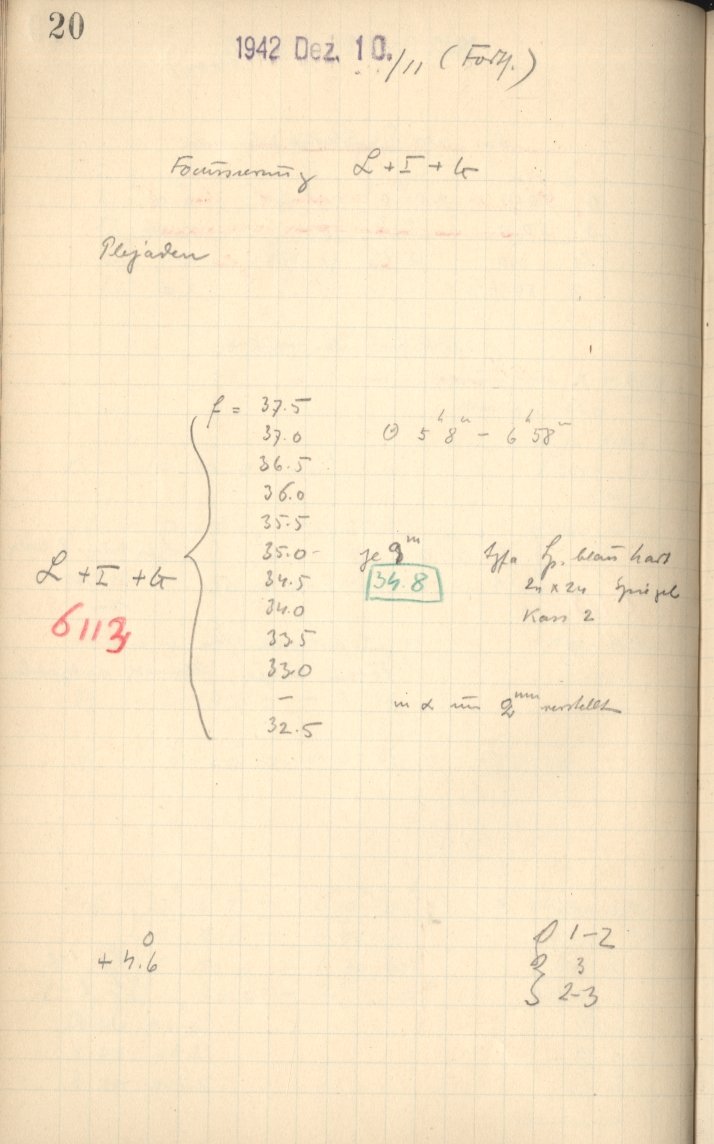 20
1942 Dez. 10./11 (Forts.)
Focussierung L + I + G
Plejaden
f = 37.5
37.0 5h 8m – 6h 58m
36.5
36.0
35.5
35.0 je 9m Agfa Sp. blau hart
L + I + G 34.5 34.8 24 x 24 Spiegel
34.0 Kass 2
6113
33.5
33.0
– in α um 2mm verstellt
32.5
0 1–2
+ 4.6 3
2–3